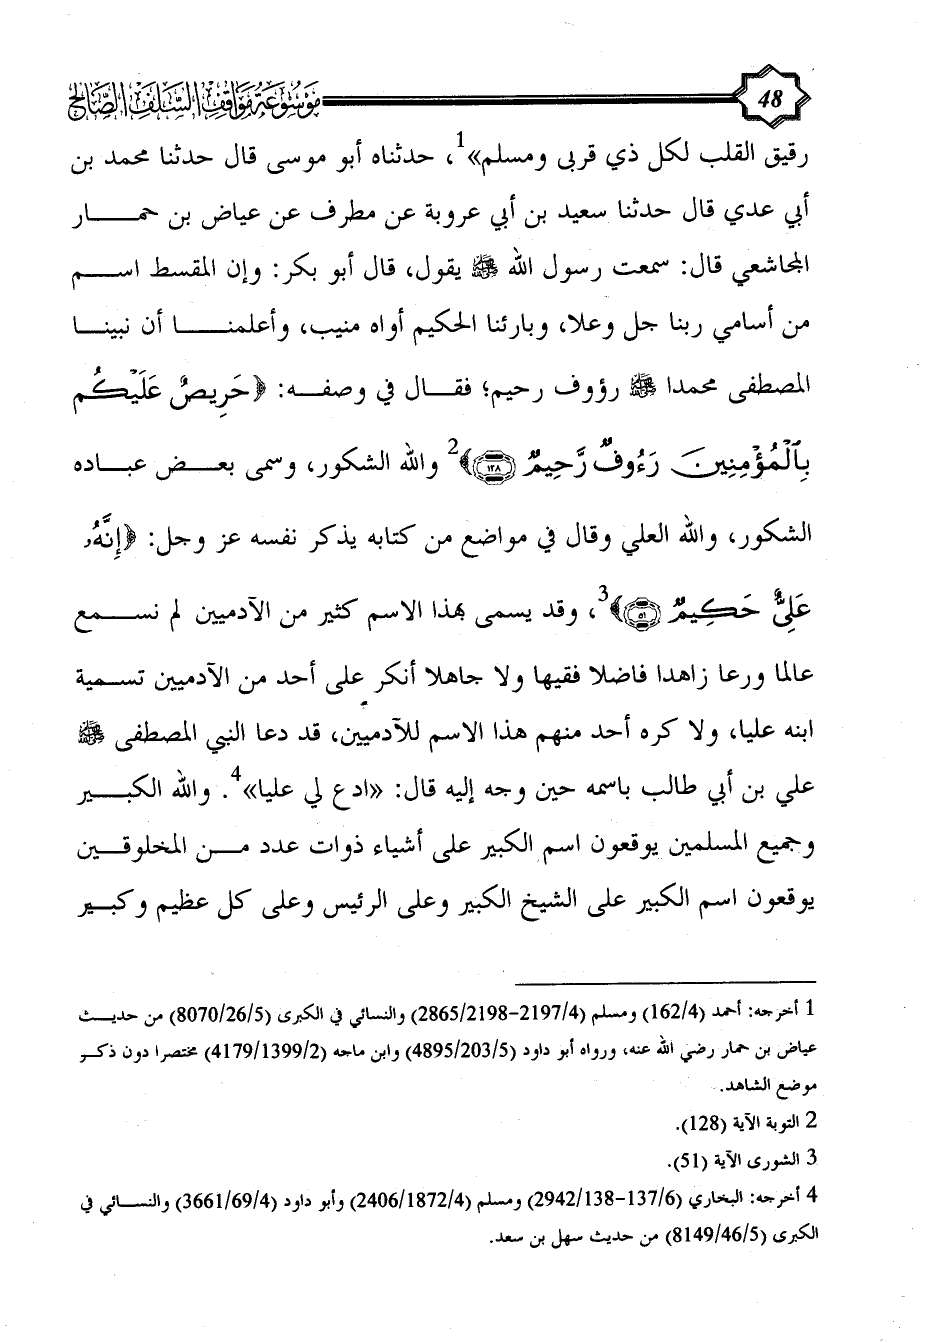 موسوعة مواقف السلف الصالح
48
رقيق القلب لكل ذي قربى ومسلم»1، حدثناه أبو موسى قال حدثنا محمد بن
أبي عدي قال حدثنا سعيد بن أبي عروبة عن مطرف عن عياض بن حمار
المجاشعي قال: سمعت رسول الله ﷺ يقول، قال أبو بكر: وإن المقسط اسم
من أسامي ربنا جل وعلا، وبارئنا الحكيم أواه منيب، وأعلمنا أن نبينا
المصطفى محمدا ﷺ رؤوف رحيم؛ فقال في وصفه: ﴿حَرِيصٌ عَلَيْكُم
بِالْمُؤْمِنِينَ رَءُوفٌ رَّحِيمٌ ١٢٨﴾2 والله الشكور، وسمى بعض عباده
الشكور، والله العلي وقال في مواضع من كتابه يذكر نفسه عز وجل: ﴿إِنَّهُۥ
عَلِيٌّ حَكِيمٌ ٥١﴾3، وقد يسمى بهذا الاسم كثير من الآدميين لم نسمع
عالما ورعا زاهدا فاضلا فقيها ولا جاهلا أنكر على أحد من الآدميين تسمية
ابنه عليا، ولا كره أحد منهم هذا الاسم للآدميين، قد دعا النبي المصطفى ﷺ
علي بن أبي طالب باسمه حين وجه إليه قال: «ادع لي عليا»4. والله الكبير
وجميع المسلمين يوقعون اسم الكبير على أشياء ذوات عدد من المخلوقين
يوقعون اسم الكبير على الشيخ الكبير وعلى الرئيس وعلى كل عظيم وكبير
1 أخرجه: أحمد (162/4) ومسلم (2197/4-2865/2198) والنسائي في الكبرى (8070/26/5) من حديث
عياض بن حمار رضي الله عنه، ورواه أبو داود (4895/203/5) وابن ماجه (4179/1399/2) مختصرا دون ذكر
موضع الشاهد.
2 التوبة الآية (128).
3 الشورى الآية (51).
4 أخرجه: البخاري (137/6-2942/138) ومسلم (2406/1872/4) وأبو داود (3661/69/4) والنسائي في
الكبرى (8149/46/5) من حديث سهل بن سعد.